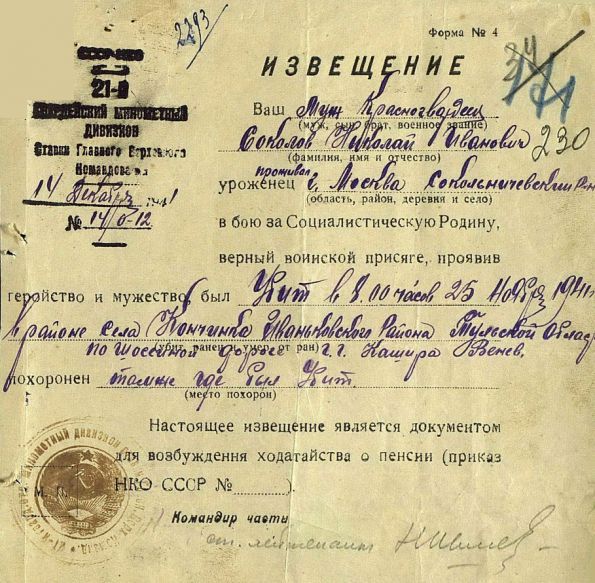 2293
Форма № 4
ИЗВЕЩЕНИЕ
СССР-НКО
21-й
Гвардейский минометный
дивизион
Ставки Главного Верховного
Командования
14 Декабря 1941
№ 14/0-12
Ваш Муж Красногвардеец
(муж, сын, брат, военное звание)
Соколов Николай Иванович 230
(фамилия, имя и отчество)
проживал
уроженец г. Москва Сокольнический Рон
(область, район, деревня и село)
в бою за Социалистическую Родину,
верный воинской присяге, проявив
геройство и мужество, был Убит в 8.00 часов 25 ноября 1941г
в районе села Кончинка Иваньковского Района Тульской Област
(убит, ранен и умер от ран)
по шоссейной дороге г.г. Кашира Венев.
похоронен тамже где был Убит
(место похорон)
Настоящее извещение является документом
для возбуждения ходатайства о пенсии (приказ
М. П. НКО СССР № ).
Командир части
ст. лейтенант